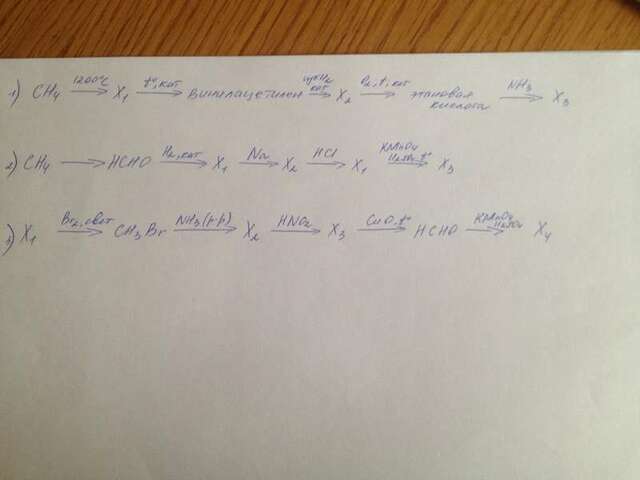 1) CH4 —1200°C→ X1 —t°, кат→ винилацетилен —изб H2, кат→ X2 —O2, t, кат→ этановая кислота —NH3→ X3
2) CH4 → HCHO —H2, кат→ X1 —Na→ X2 —HCl→ X1 —KMnO4, H2SO4, t°→ X3
3) X1 —Br2, свет→ CH3Br —NH3(р-р)→ X2 —HNO2→ X3 —CuO, t°→ HCHO —KMnO4, H2SO4→ X4